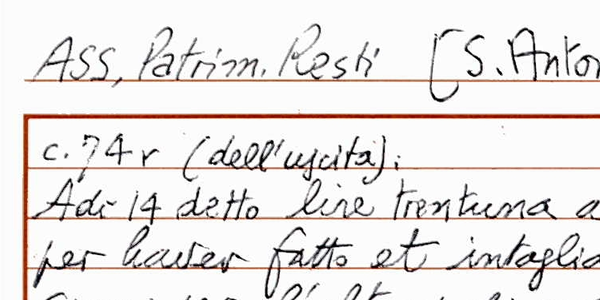 ASS, Patrim. Resti [S. Anton
c. 74 r (dell'uscita):
Adi 14 detto lire trentuna a
per haver fatto et intaglia